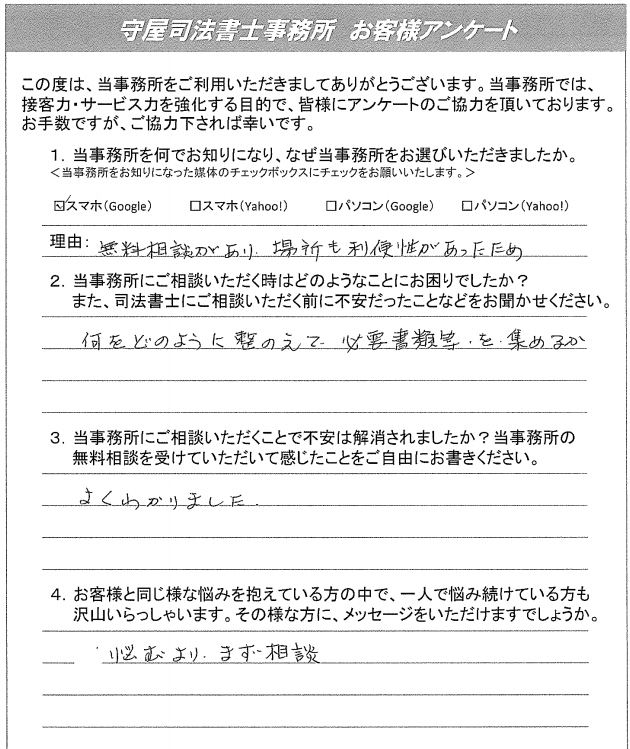 守屋司法書士事務所 お客様アンケート
この度は、当事務所をご利用いただきましてありがとうございます。当事務所では、
接客力・サービス力を強化する目的で、皆様にアンケートのご協力を頂いております。
お手数ですが、ご協力下されば幸いです。
1. 当事務所を何でお知りになり、なぜ当事務所をお選びいただきましたか。
＜当事務所をお知りになった媒体のチェックボックスにチェックをお願いいたします。＞
☑スマホ(Google) □スマホ(Yahoo!) □パソコン(Google) □パソコン(Yahoo!)
理由: 無料相談があり、場所も利便性があったため
2. 当事務所にご相談いただく時はどのようなことにお困りでしたか？
また、司法書士にご相談いただく前に不安だったことなどをお聞かせください。
何をどのように整のえて、必要書類等を集めるか
3. 当事務所にご相談いただくことで不安は解消されましたか？当事務所の
無料相談を受けていただいて感じたことをご自由にお書きください。
よくわかりました。
4. お客様と同じ様な悩みを抱えている方の中で、一人で悩み続けている方も
沢山いらっしゃいます。その様な方に、メッセージをいただけますでしょうか。
悩むより、まず相談